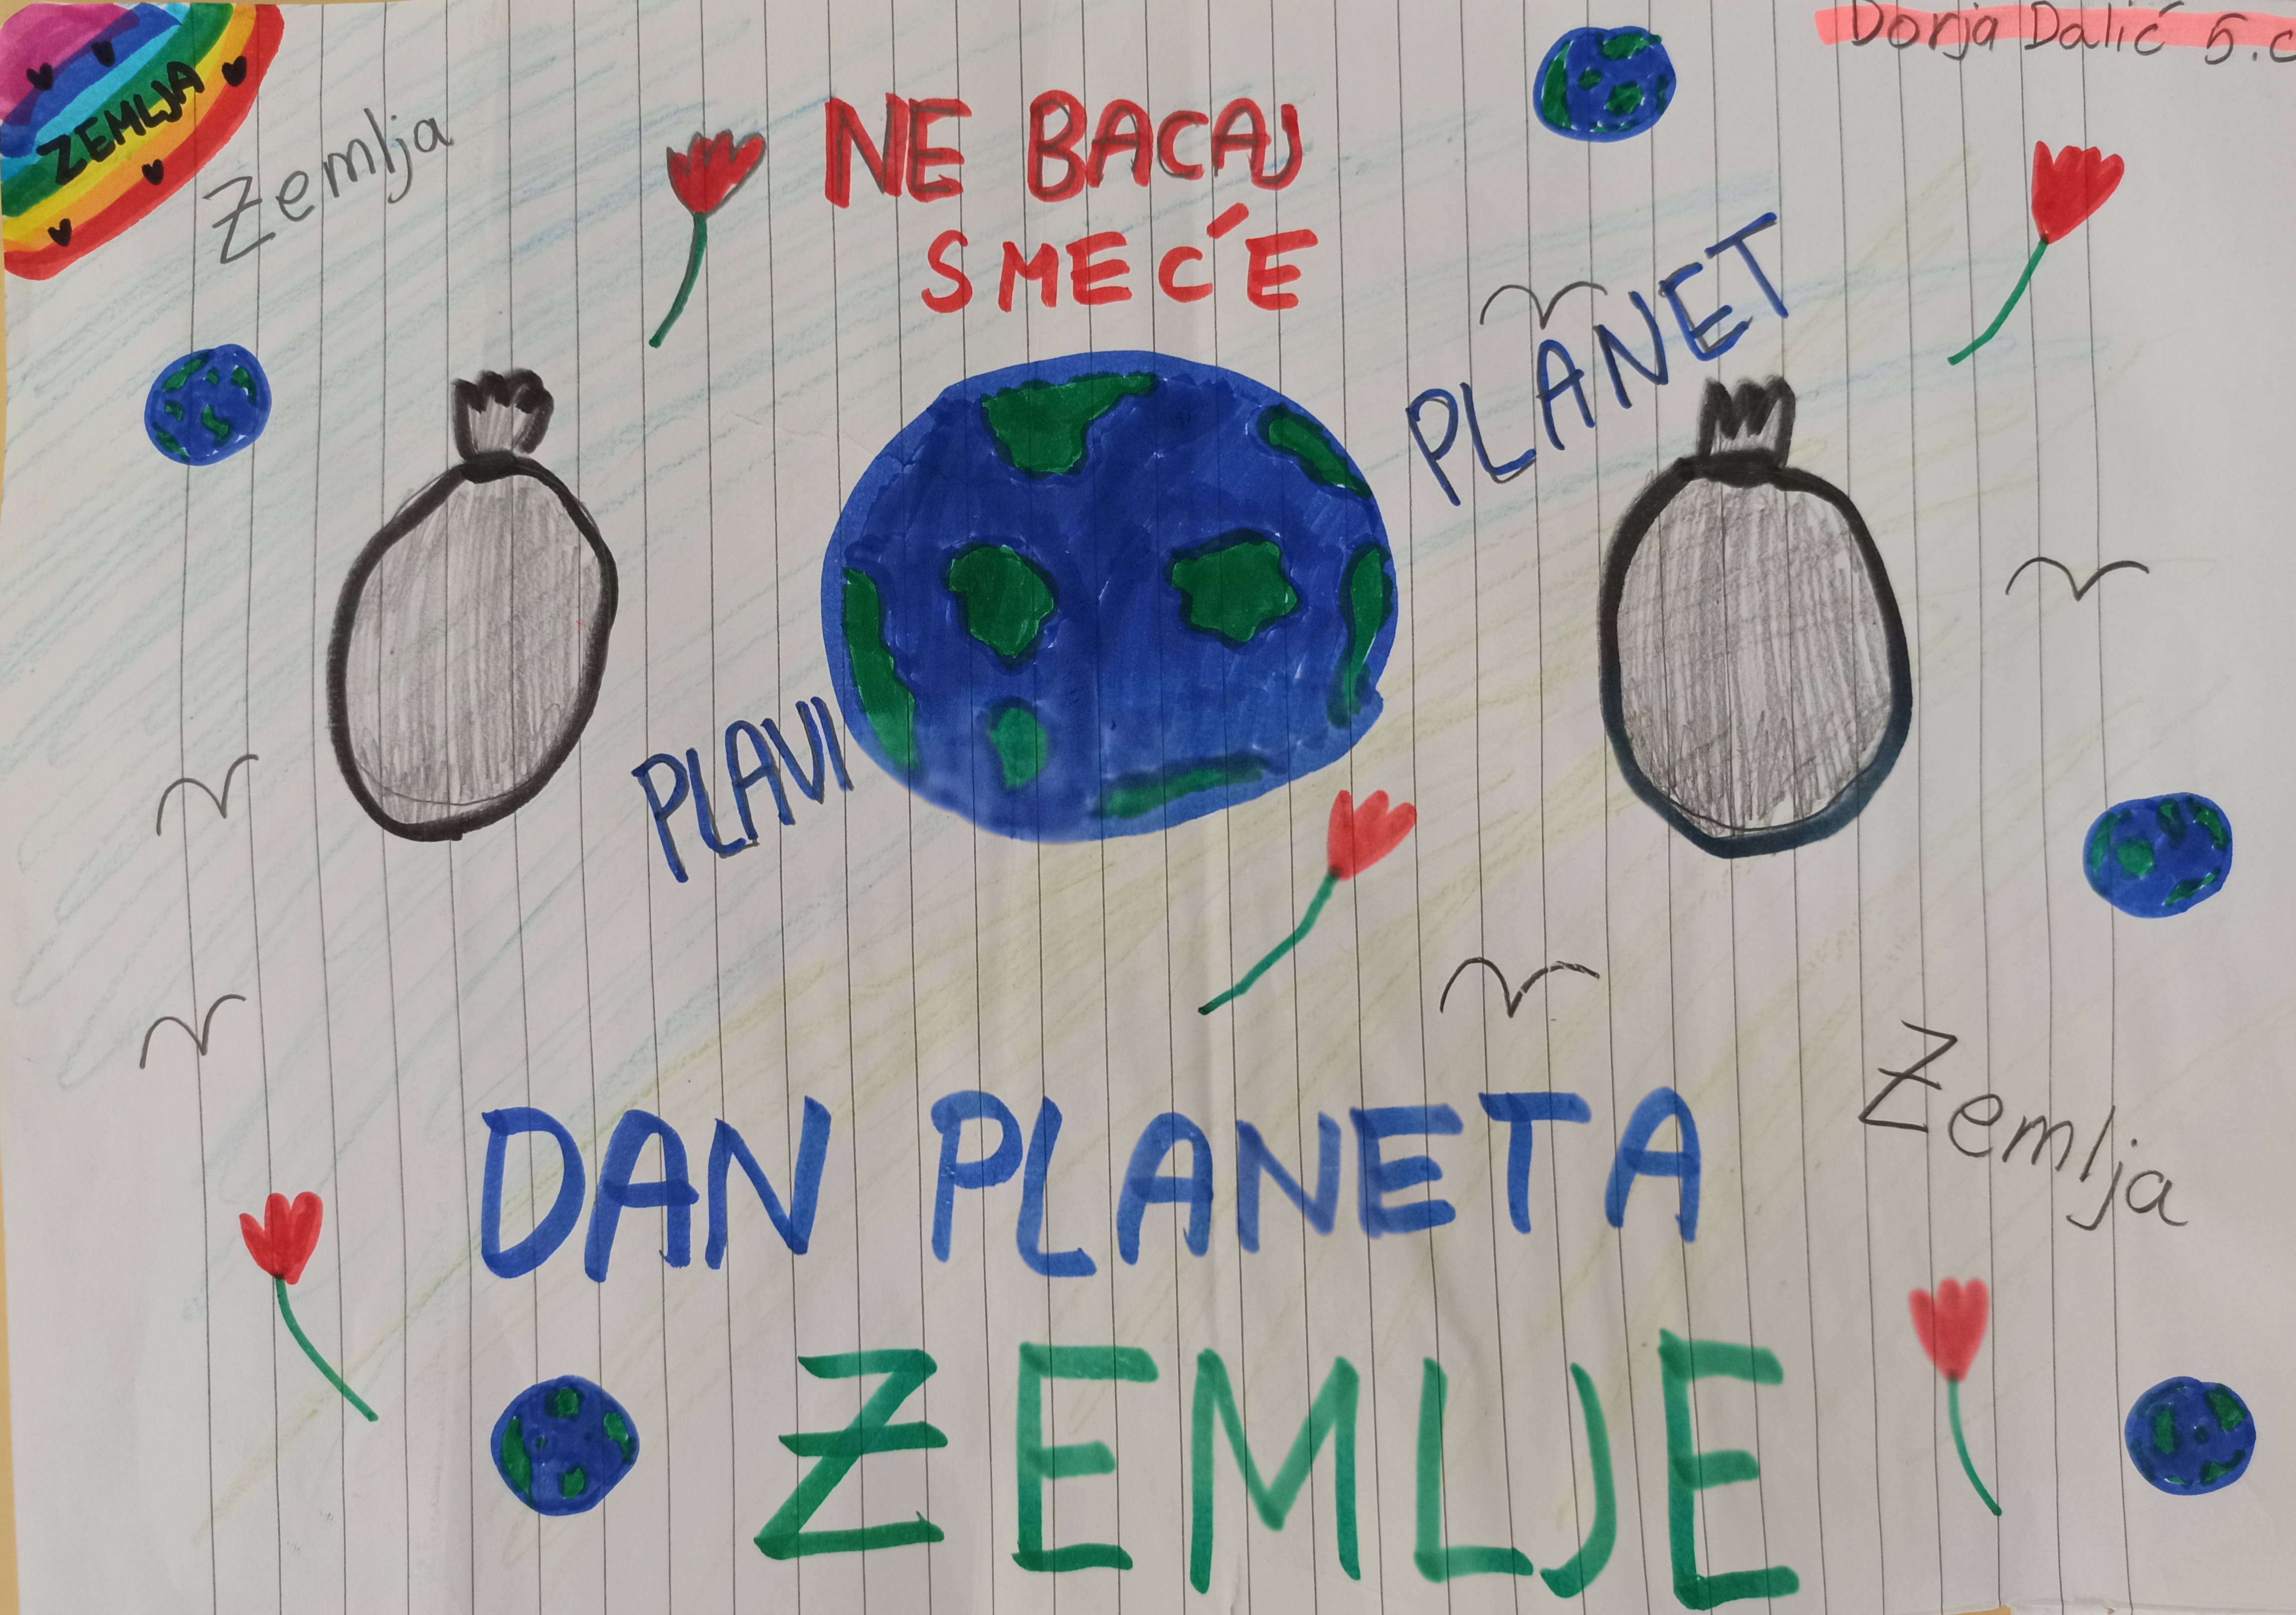 Dorja Dalić 5.c
ZEMLJA
Zemlja
NE BACAJ
SMEĆE
PLANET
PLAVI
Zemlja
DAN PLANETA
ZEMLJE